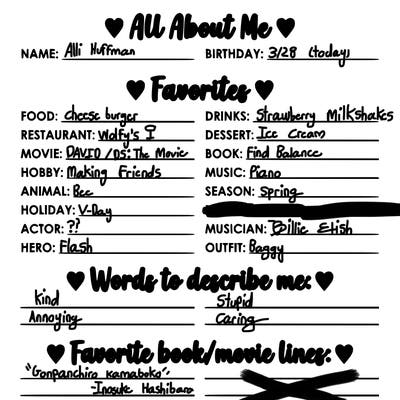 ♥ All About Me ♥
NAME: Alli Huffman BIRTHDAY: 3/28 (today)
♥ Favorites ♥
FOOD: cheese burger DRINKS: Strawberry Milkshakes
RESTAURANT: Wolfy's DESSERT: Ice Cream
MOVIE: DAVID / DS: The Movie BOOK: Find Balance
HOBBY: Making Friends MUSIC: Piano
ANIMAL: Bee SEASON: Spring
HOLIDAY: V-Day
ACTOR: ?? MUSICIAN: Billie Eilish
HERO: Flash OUTFIT: Baggy
♥ Words to describe me: ♥
kind Stupid
Annoying Caring
♥ Favorite book/movie lines: ♥
"Gonpanchiro Kamaboko"
-Inosuke Hashibara